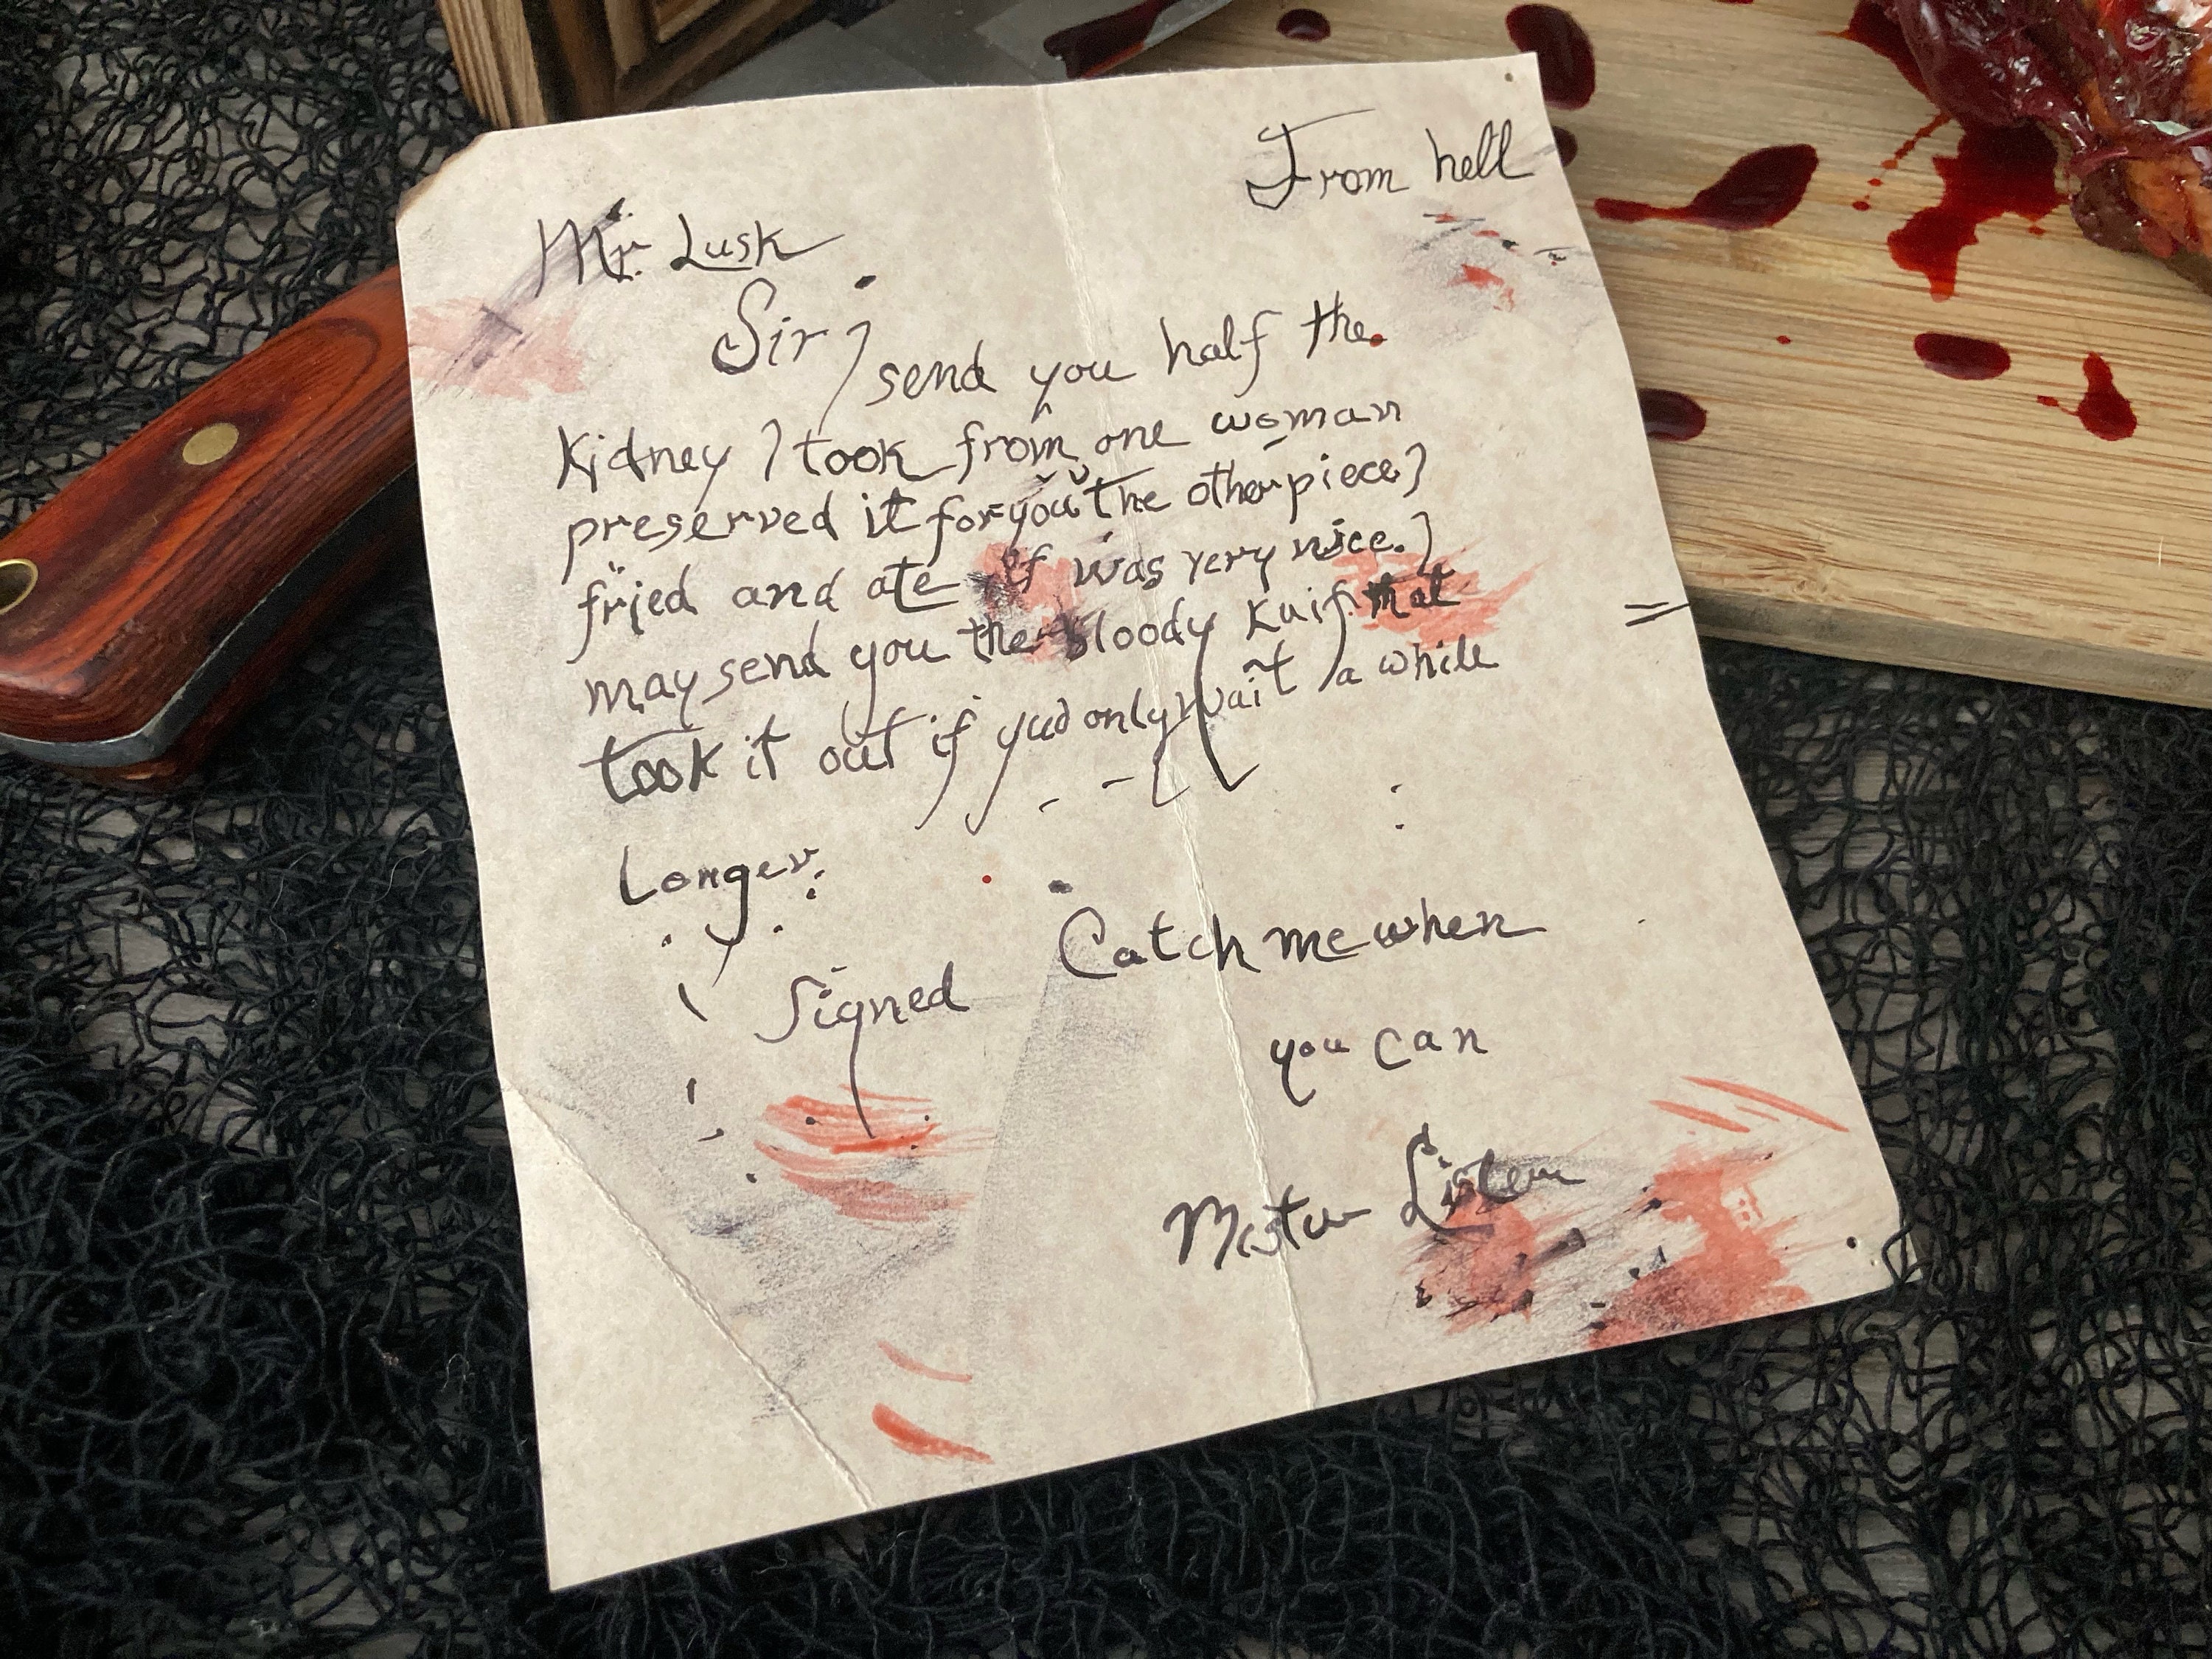 From hell
Mr. Lusk
Sir I send you half the
Kidney I took from one woman
preserved it for you the other piece I
fried and ate it was very nice. I
may send you the bloody Knif that
took it out if you only wait a while
Longer.
Signed Catch me when
you can
Mister